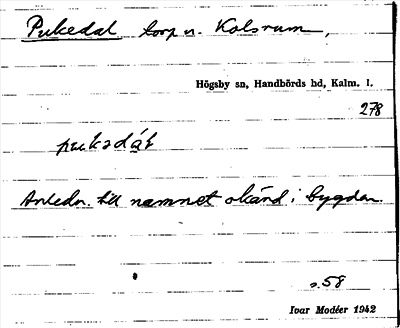 Pukedal torp u. Kolsrum,
Högsby sn, Handbörds hd, Kalm. l.
278
Anledn. till namnet okänd i bygden.
s. 58
Ivar Modéer 1942